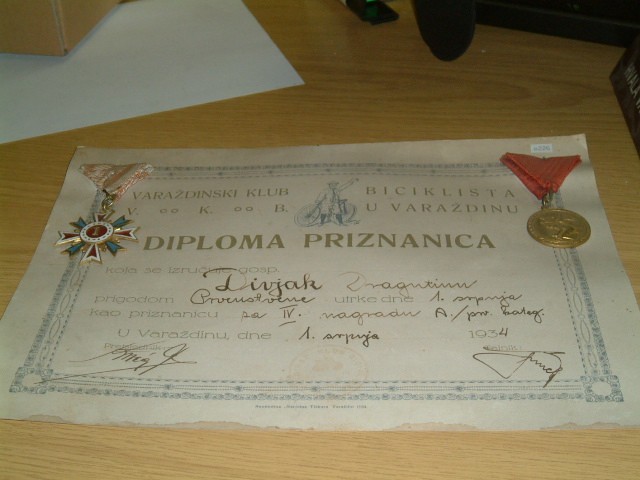 VARAŽDINSKI KLUB BICIKLISTA
V. K. B. U VARAŽDINU
DIPLOMA PRIZNANICA
koja se izručuje gosp.
Divjak Dragutinu
prigodom Prvenstvene utrke dne 1. srpnja
kao priznanicu za IV. nagradu A./prv. kateg.
U Varaždinu, dne 1. srpnja 1934